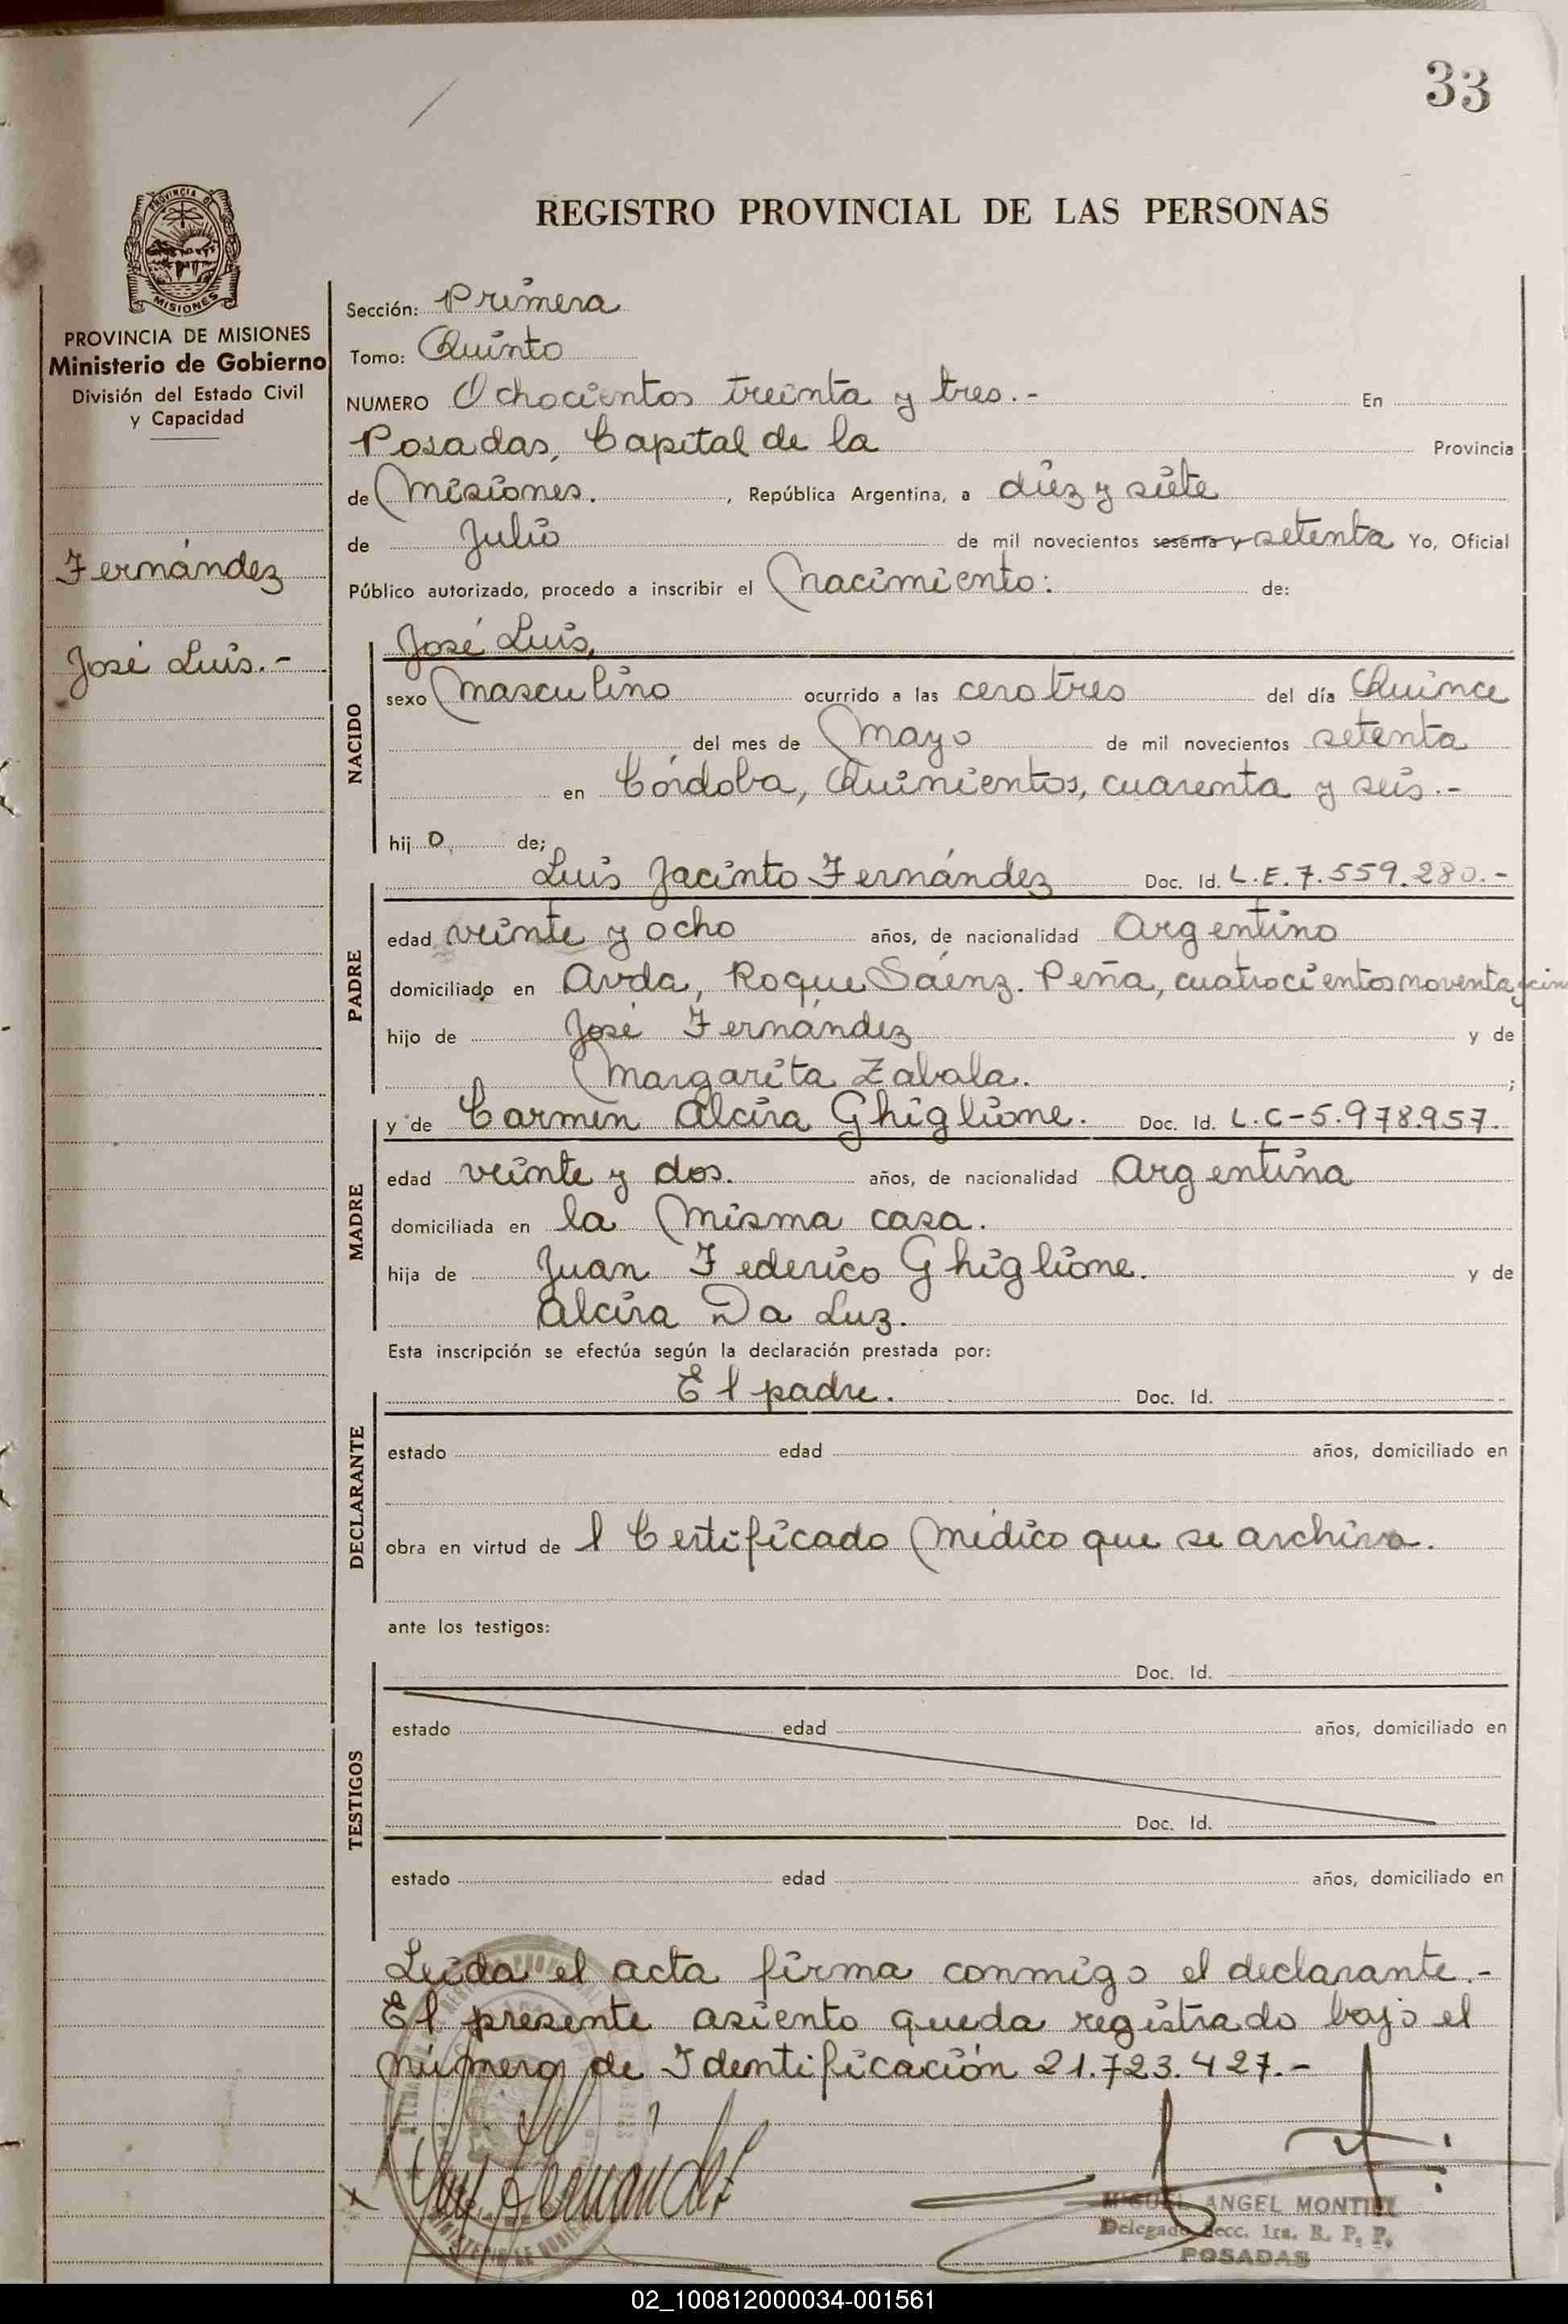 33
REGISTRO PROVINCIAL DE LAS PERSONAS
PROVINCIA DE MISIONES
PROVINCIA DE MISIONES
Ministerio de Gobierno
División del Estado Civil
y Capacidad
Fernández
José Luis.-
Sección: Primera
Tomo: Quinto
NUMERO Ochocientos treinta y tres.- En
Posadas, Capital de la Provincia
de Misiones. , República Argentina, a diez y siete
de Julio de mil novecientos sesenta y setenta Yo, Oficial
Público autorizado, procedo a inscribir el Nacimiento: de:
NACIDO
José Luis,
sexo Masculino ocurrido a las cero tres del día Quince
del mes de Mayo de mil novecientos setenta
en Córdoba, Quinientos, cuarenta y seis.-
hijo de;
PADRE
Luis Jacinto Fernández Doc. Id. L.E.7.559.280.-
edad veinte y ocho años, de nacionalidad Argentino
domiciliado en Avda, Roque Sáenz. Peña, cuatrocientos noventa y cin
hijo de José Fernández y de
Margarita Zabala. ;
MADRE
y de Carmen Alcira Ghiglione. Doc. Id. L.C-5.978.957.
edad veinte y dos. años, de nacionalidad Argentina
domiciliada en la Misma casa.
hija de Juan Federico Ghiglione. y de
Alcira Da Luz.
Esta inscripción se efectúa según la declaración prestada por:
DECLARANTE
El padre. Doc. Id.
estado edad años, domiciliado en
obra en virtud de l Certificado Médico que se archiva.
ante los testigos:
TESTIGOS
Doc. Id.
estado edad años, domiciliado en
Doc. Id.
estado edad años, domiciliado en
Leída el acta firma conmigo el declarante.-
El presente asiento queda registrado bajo el
número de Identificación 21.723.427.-
Luis Fernández
MIGUEL ANGEL MONTINI
Delegado Secc. 1ra. R. P. P.
POSADAS
02_100812000034-001561